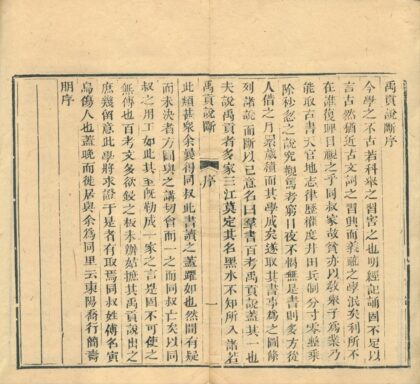 禹貢說斷序
今學之不古若科舉之習害之也明經記誦固不足以
言古然猶近古文詞之習興而義疏之學泯矣利所不
在誰復 目 之乎同叔家故貧亦以敎衆子爲業乃
能取古書天官地志律歷權度井田兵制分寸零整乘
除杪忽之說究觀篤考窮日夜不懈無是書則多方從
人借之月累歲積而其學成矣遂取其書事爲之圖條
列諸說而斷以已意名曰羣書百考禹貢說蓋其一也
夫說禹貢者多家三江莫定其名黑水不知所入諸若
禹貢說斷 序 一
此類甚衆余 得同叔此書讀之蓋躍如也然間有疑
而未決者方圖與之講切會而一之而同叔亡矣以同
叔之用工如此其至旣勒成一家之言是固不可使之
無傳也百考文多欲鋟之板未辦姑摭其禹貢說出之
庶幾 此學將來證于是者有取焉同叔姓傅名寅
烏傷人也蓋晚而徙居與余爲同里云東陽喬行簡壽
朋序